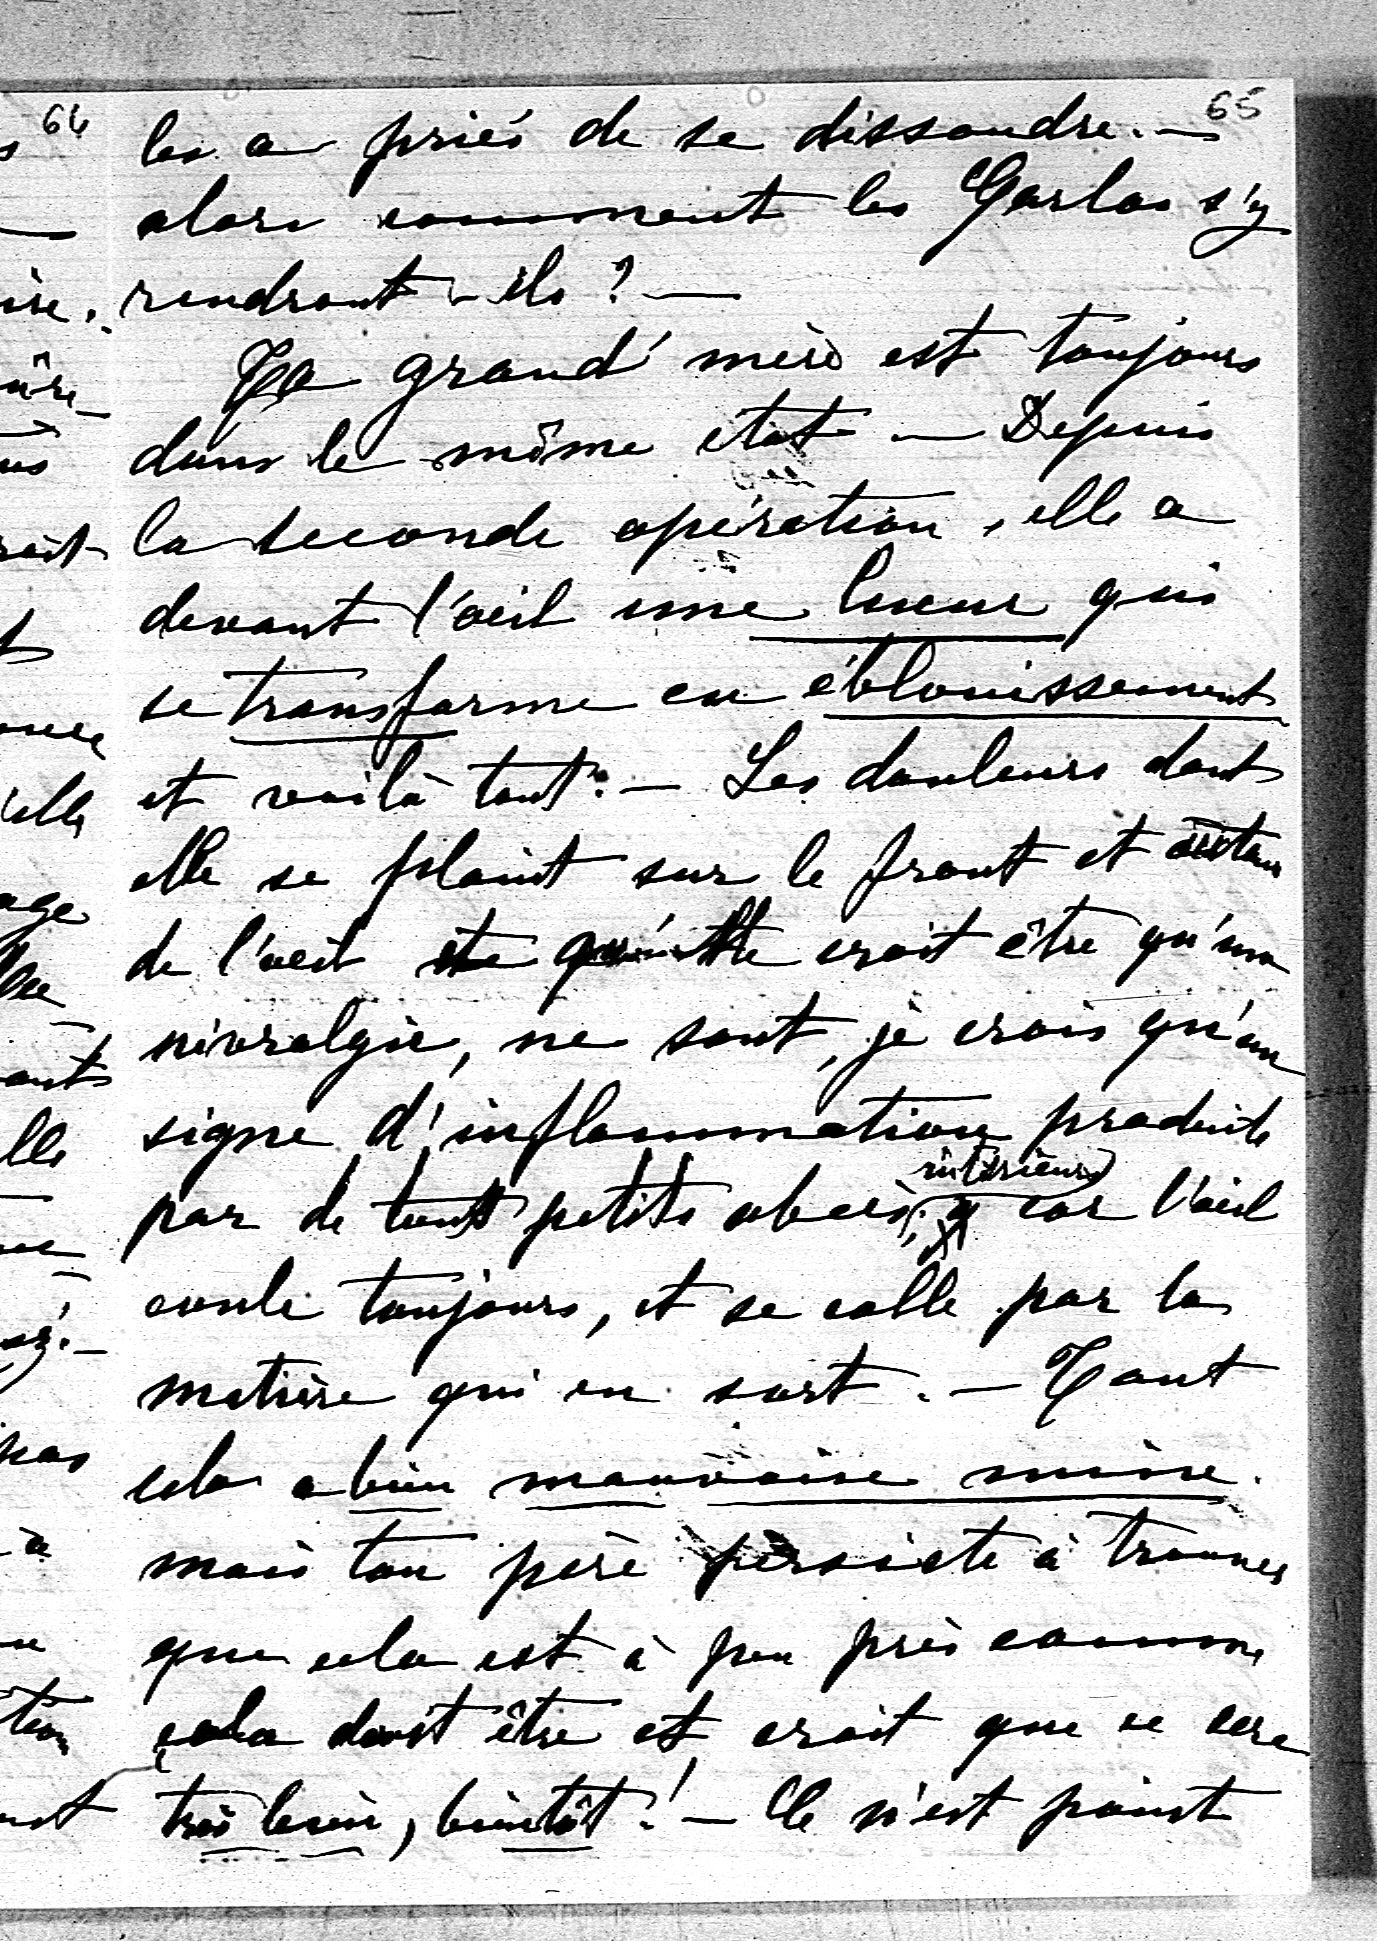 64
65
les a priés de se dissoudre. —
alors comment les Garlas s'y
rendront-ils ? —
Ta grand'mère est toujours
dans le même état — Depuis
la seconde opération, elle a
devant l'œil une lueur qui
se transforme en éblouissement
et voilà tout. — Les douleurs dont
elle se plaint sur le front et autour
de l'œil et qu'elle croit être qu'une
névralgie, ne sont, je crois qu'un
signe d'inflammation produite
intérieurs
par de tout petits abcès, car l'œil
coule toujours, et se colle par la
matière qui en sort. — Tout
cela a bien mauvaise mine.
mais ton père persiste à trouver
que cela est à peu près comme
cela doit être et croit que ce sera
très bien, bientôt ! — Ce n'est point